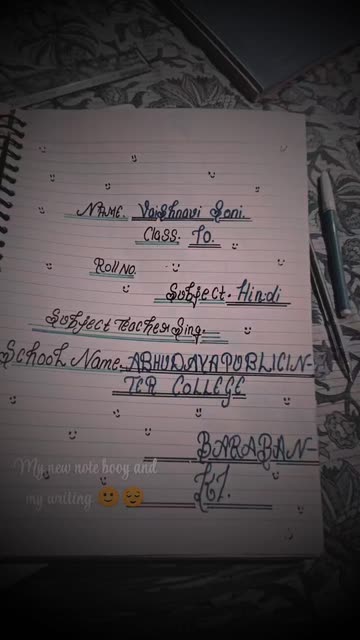 NAME. Vaishnavi Soni.
CLASS. 10.
Roll No.
Subject. Hindi
Subject Teacher Sing.
School Name. ABHUDAYA PUBLIC IN-
TER COLLEGE
BARABAN-
KI.
My new note booy and
my writing 🙂😌